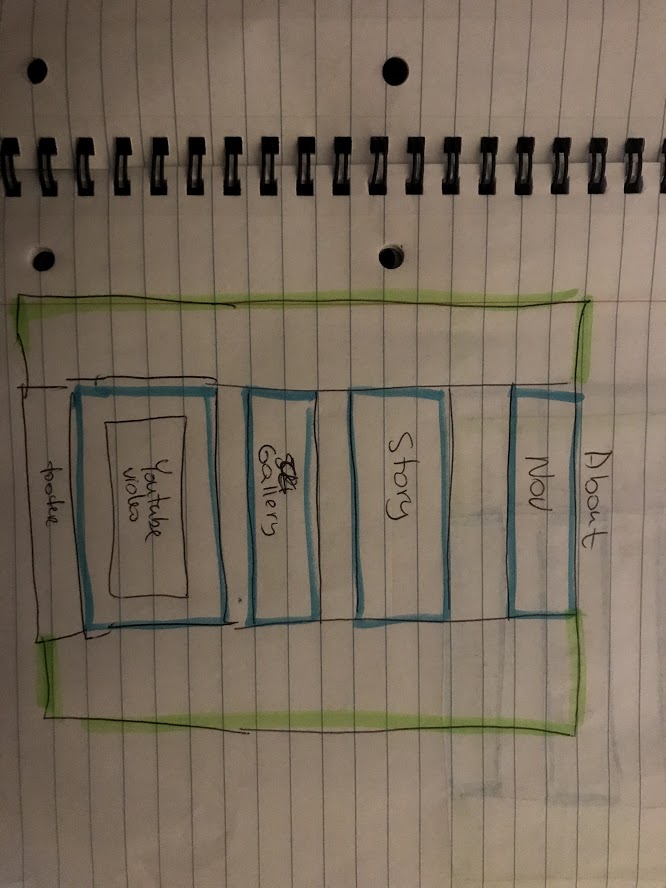 About
Nav
Story
Gallery
Youtube
video
footer